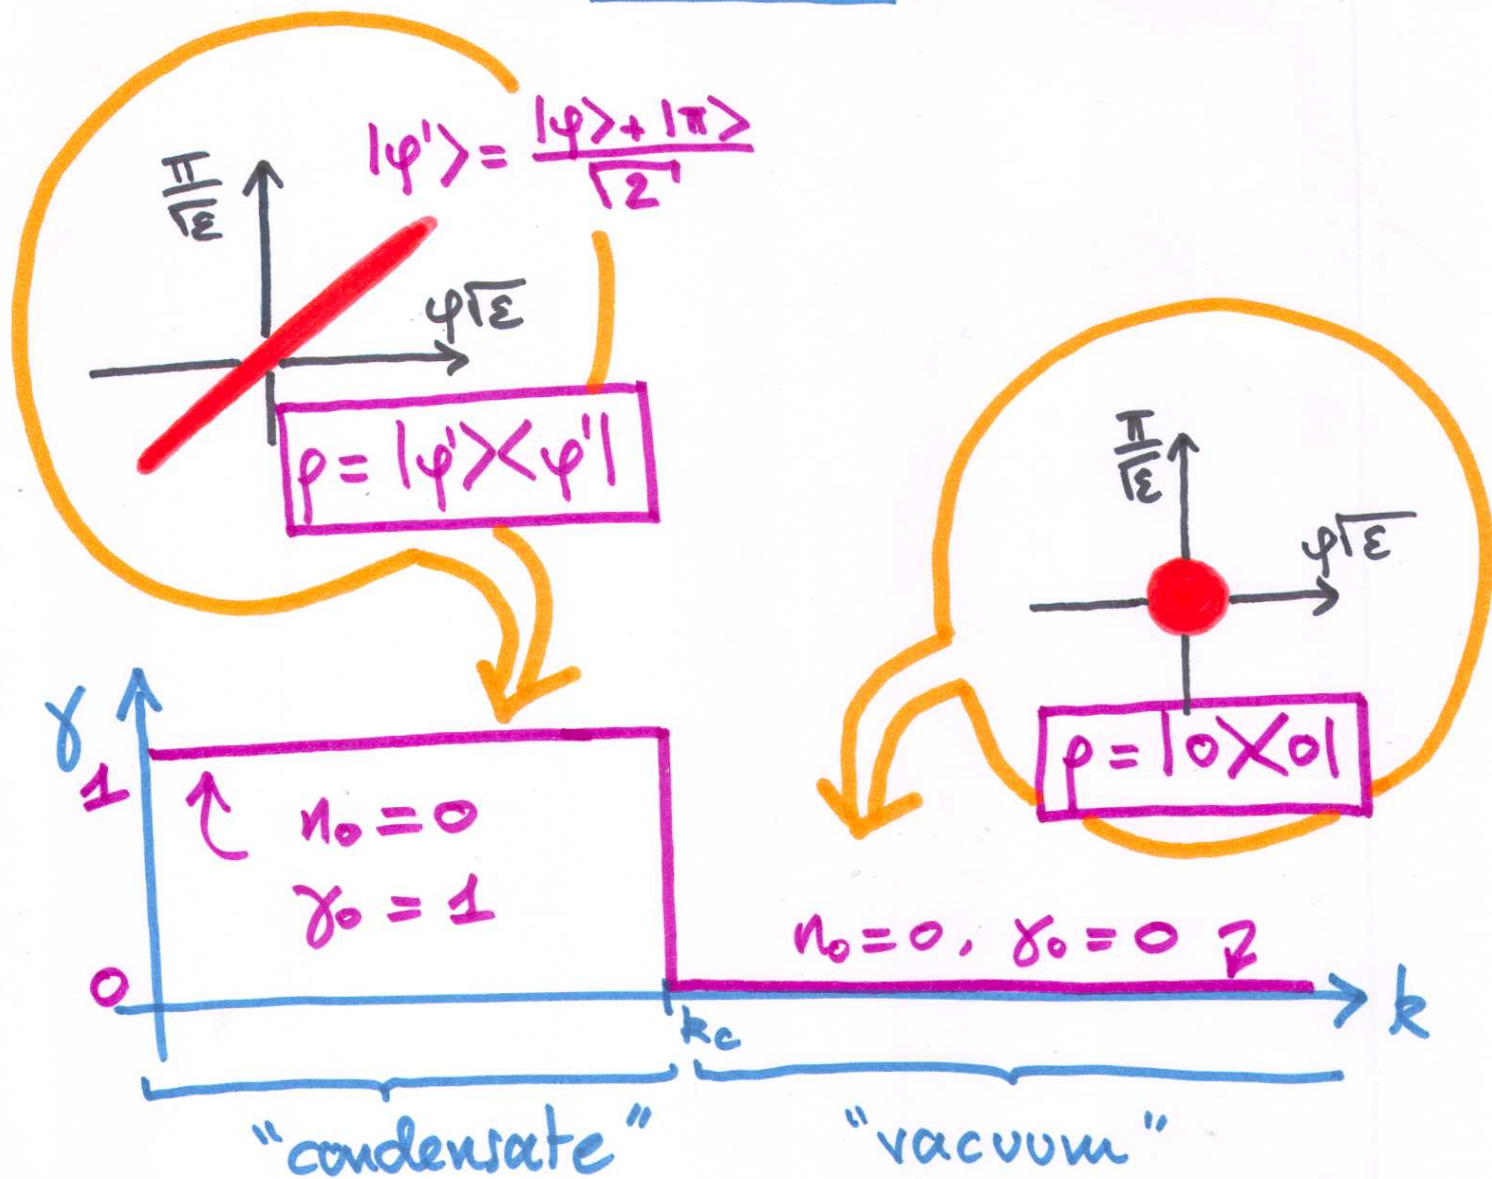 |φ'> = |φ> + |π> / √2
π/√ε
φ√ε
ρ = |φ'><φ'|
π/√ε
φ√ε
ρ = |0><0|
γ
1
n₀ = 0
γ₀ = 1
0
n₀ = 0, γ₀ = 0
k_c
k
"condensate"
"vacuum"